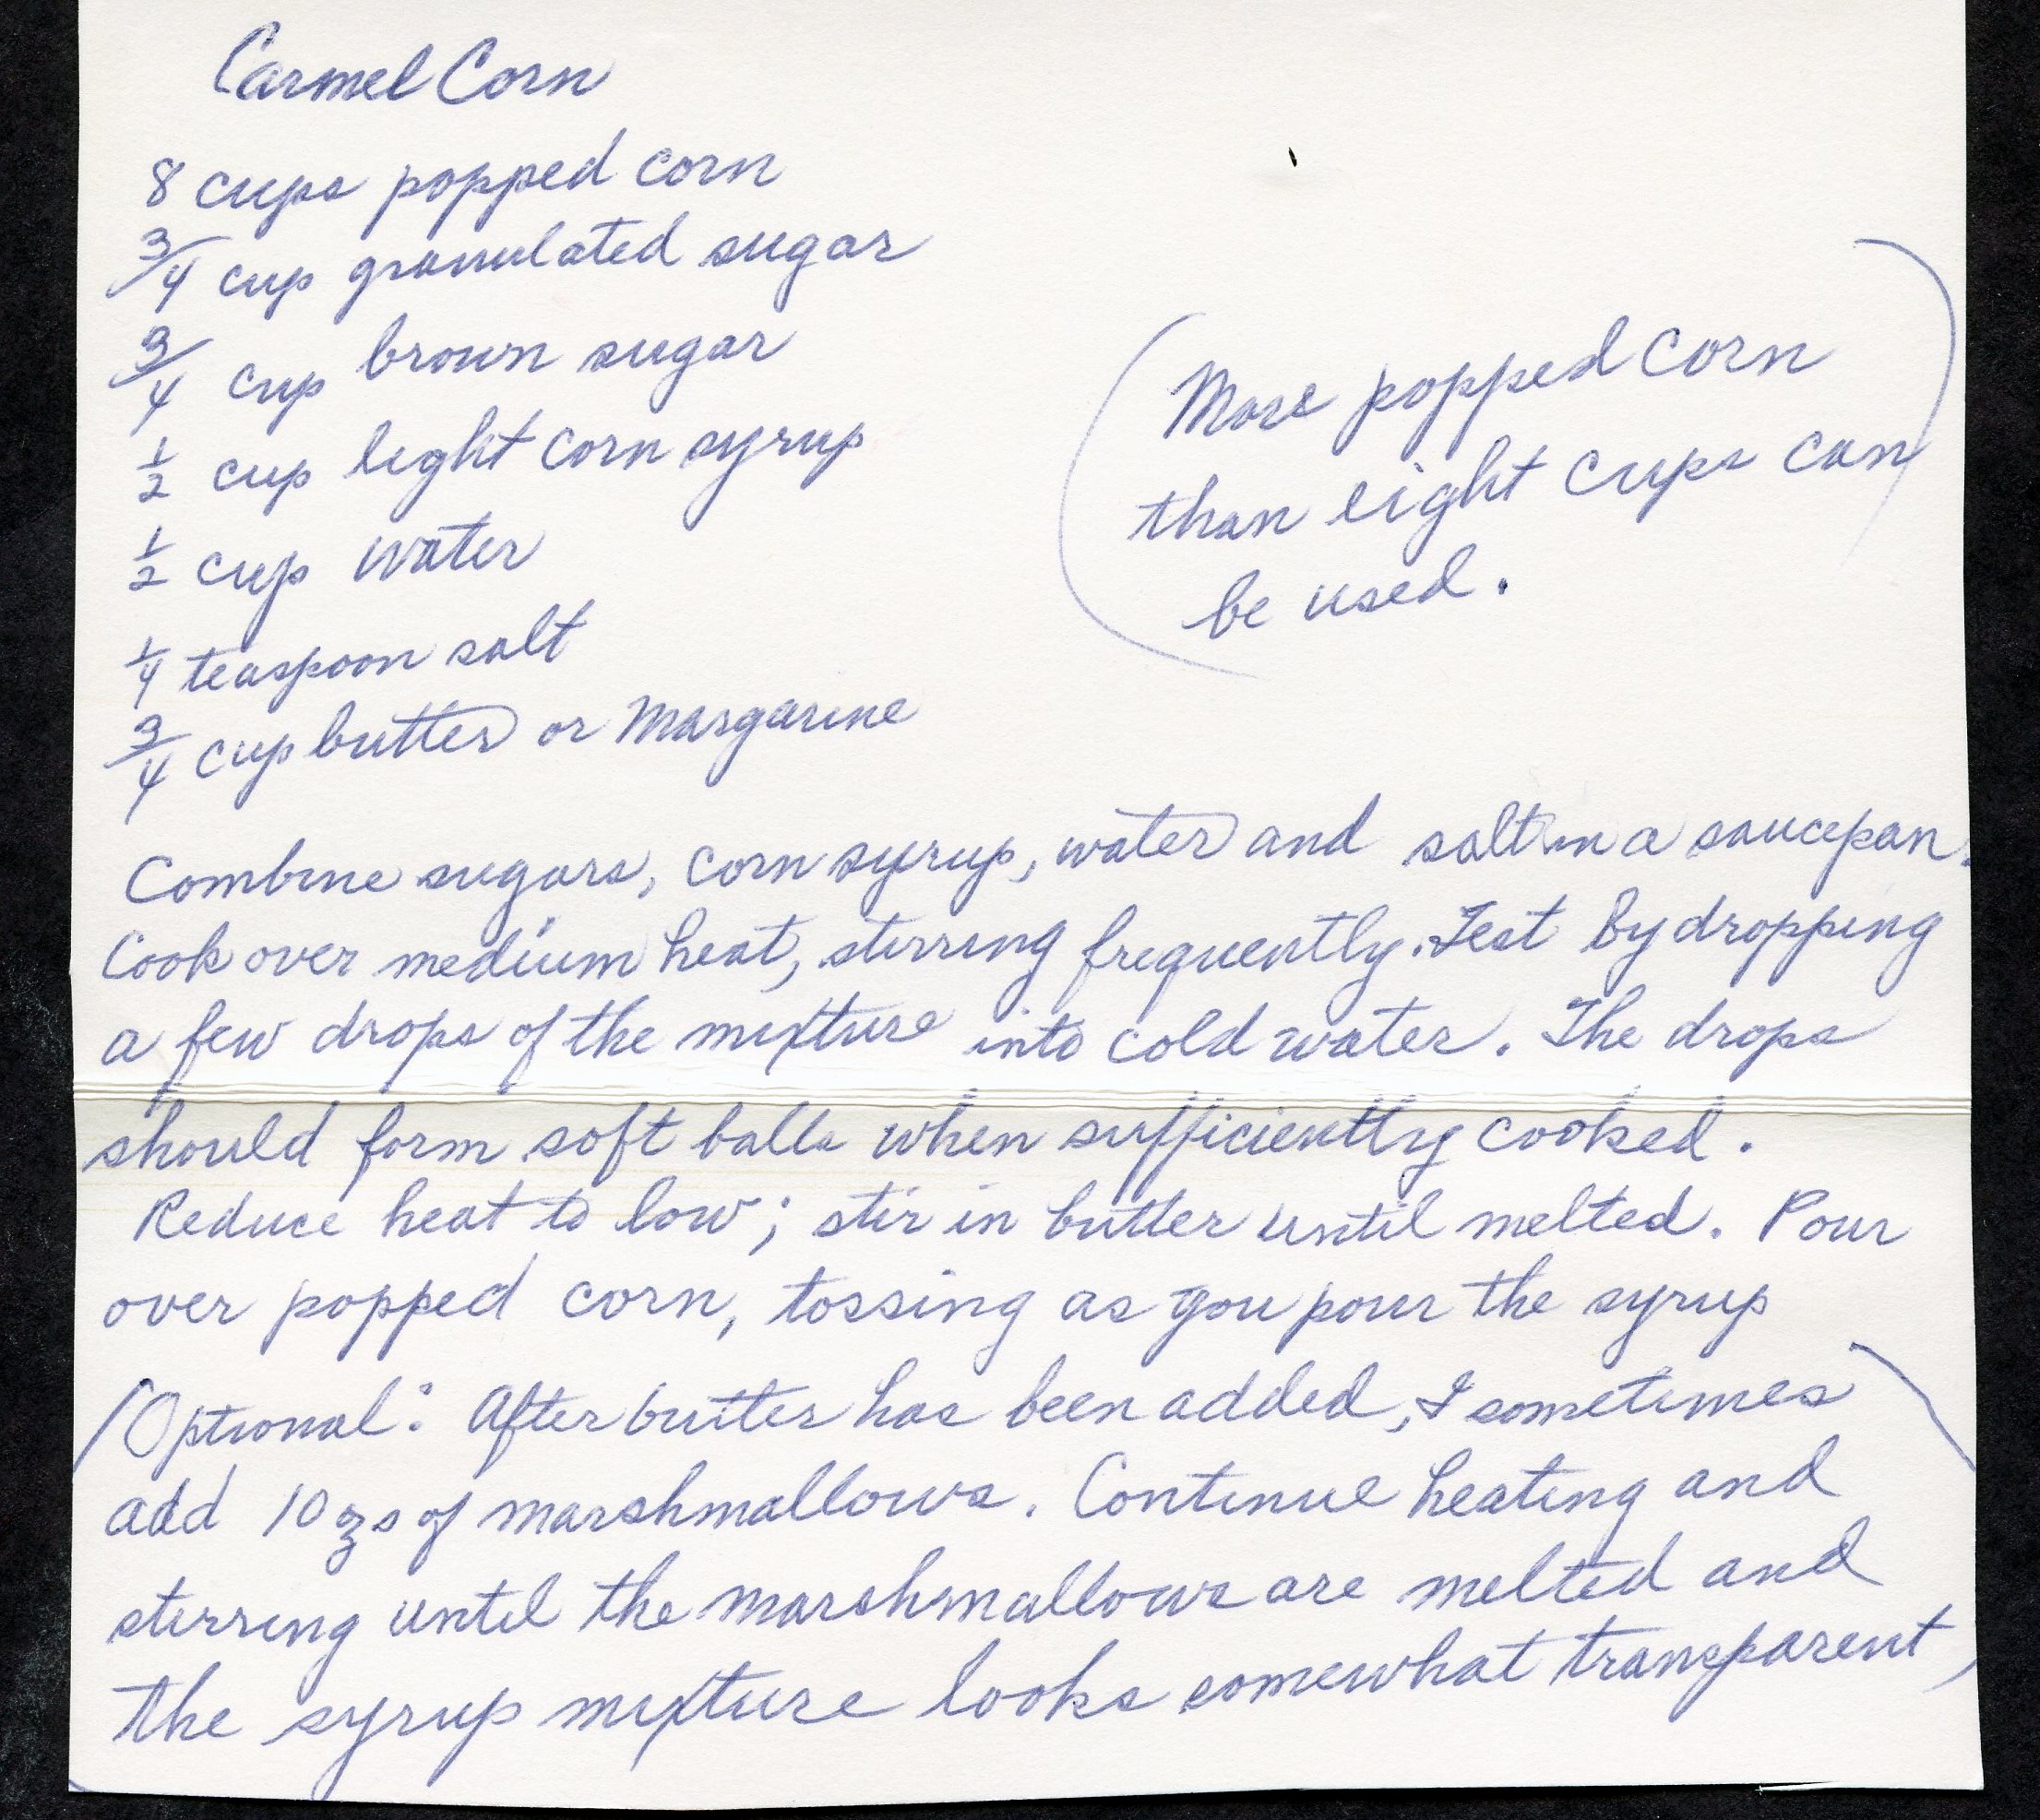 Carmel Corn
8 cups popped corn
3/4 cup granulated sugar
3/4 cup brown sugar
1/2 cup light corn syrup
1/2 cup water
1/4 teaspoon salt
3/4 cup butter or Margarine
(More popped corn
than eight cups can
be used.)
Combine sugars, corn syrup, water and salt in a saucepan.
Cook over medium heat, stirring frequently. Test by dropping
a few drops of the mixture into cold water. The drops
should form soft balls when sufficiently cooked.
Reduce heat to low; stir in butter until melted. Pour
over popped corn, tossing as you pour the syrup
(Optional: After butter has been added, I sometimes
add 10 ozs of marshmallows. Continue heating and
stirring until the marshmallows are melted and
the syrup mixture looks somewhat transparent)